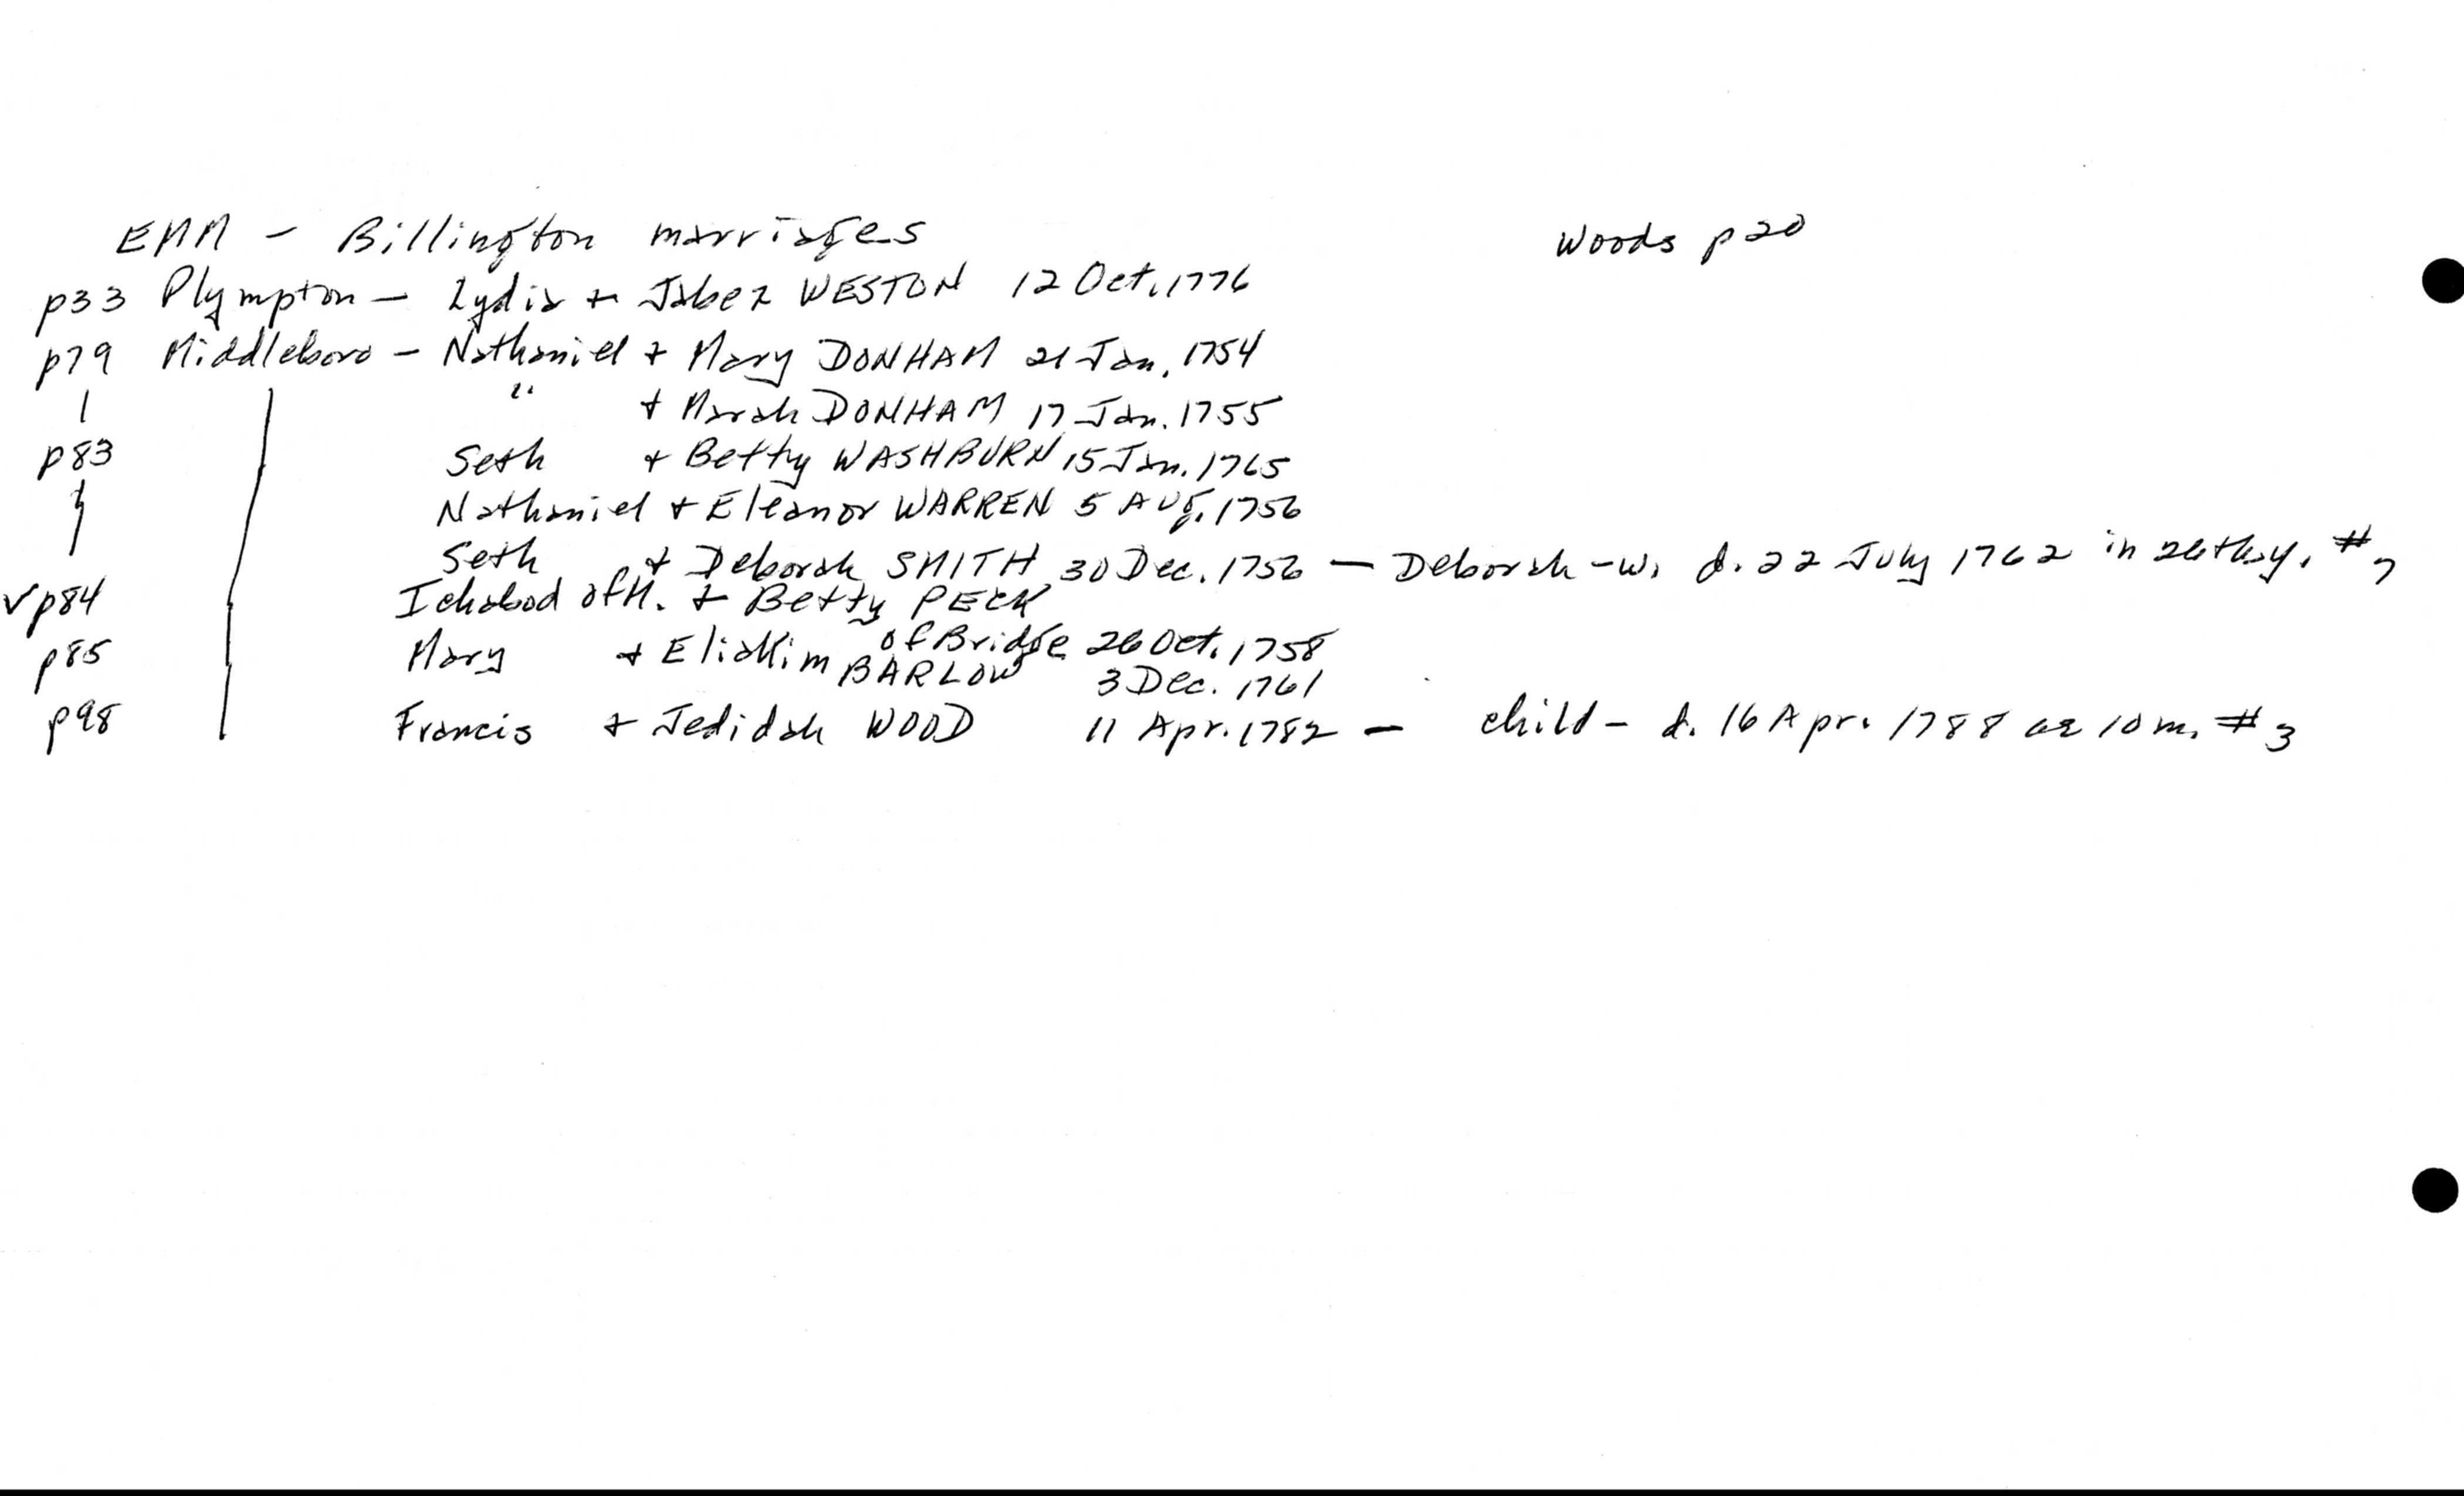 EMM - Billington marriages Woods p20
p33 Plympton - Lydia + Jabez WESTON 12 Oct. 1776
p79 Middleboro - Nathaniel + Mary DONHAM 21 Jan. 1754
" + Marah DONHAM 17 Jan. 1755
p83 Seth + Betty WASHBURN 15 Jan. 1765
Nathaniel + Eleanor WARREN 5 Aug. 1756
Seth + Deborah SMITH 30 Dec. 1756 - Deborah - w. d. 22 July 1762 in 26th y. #7
√p84 Ichabod of M. + Betty PECK
of Bridge. 26 Oct. 1758
p85 Mary + Eliakim BARLOW 3 Dec. 1761
p98 Francis + Jedidah WOOD 11 Apr. 1782 - child - d. 16 Apr. 1788 ae 10 m. #3